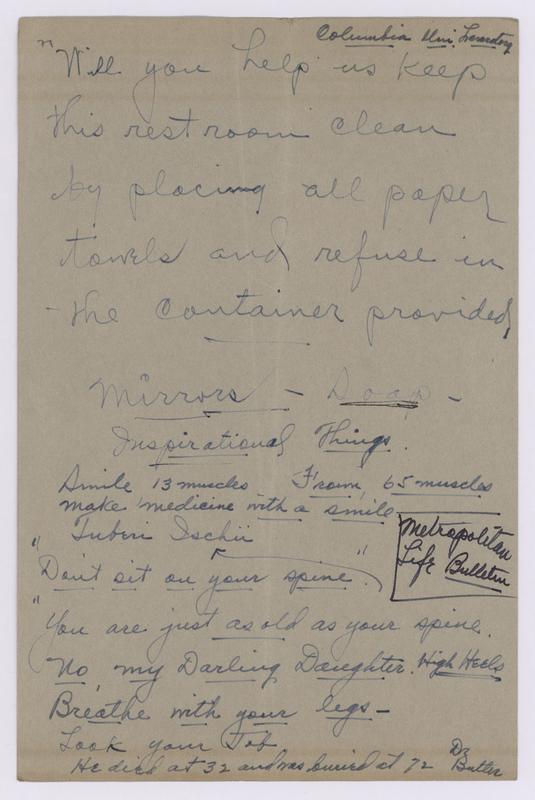 Columbia Uni. Lavatory
"Will you help us keep
this restroom clean
by placing all paper
towels and refuse in
the container provided,
Mirrors - Soap -
Inspirational Things.
Smile 13 muscles Frown, 65 muscles
make medicine with a smile
" Tuberi Ischii
Metropolitan
Life Bulletin
Don't sit on your spine".
"You are just as old as your spine.
No, my Darling Daughter. High Heels
Breathe with your legs -
Look your Job
He died at 32 and was buried at 72 Dr.
Butler